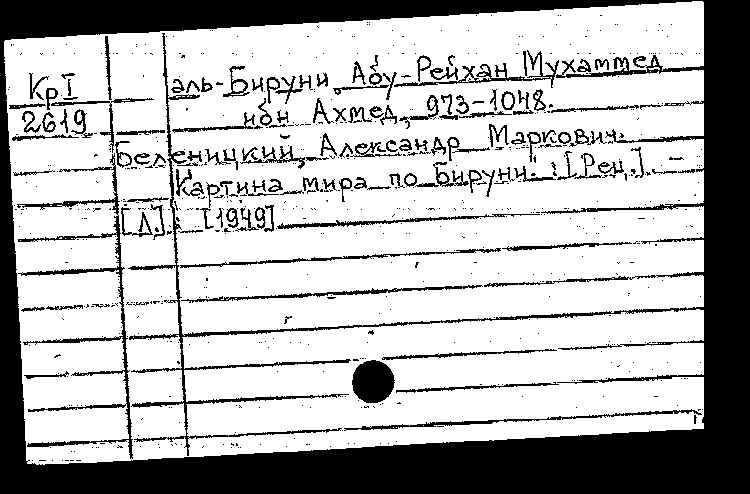 КрI аль-Бируни, Абу-Рейхан Мухаммед
2619 ибн Ахмед, 973-1048.
Беленицкий, Александр Маркович.
"Картина мира по Бируни" : [Рец.]. –
[Л.] : [1949]